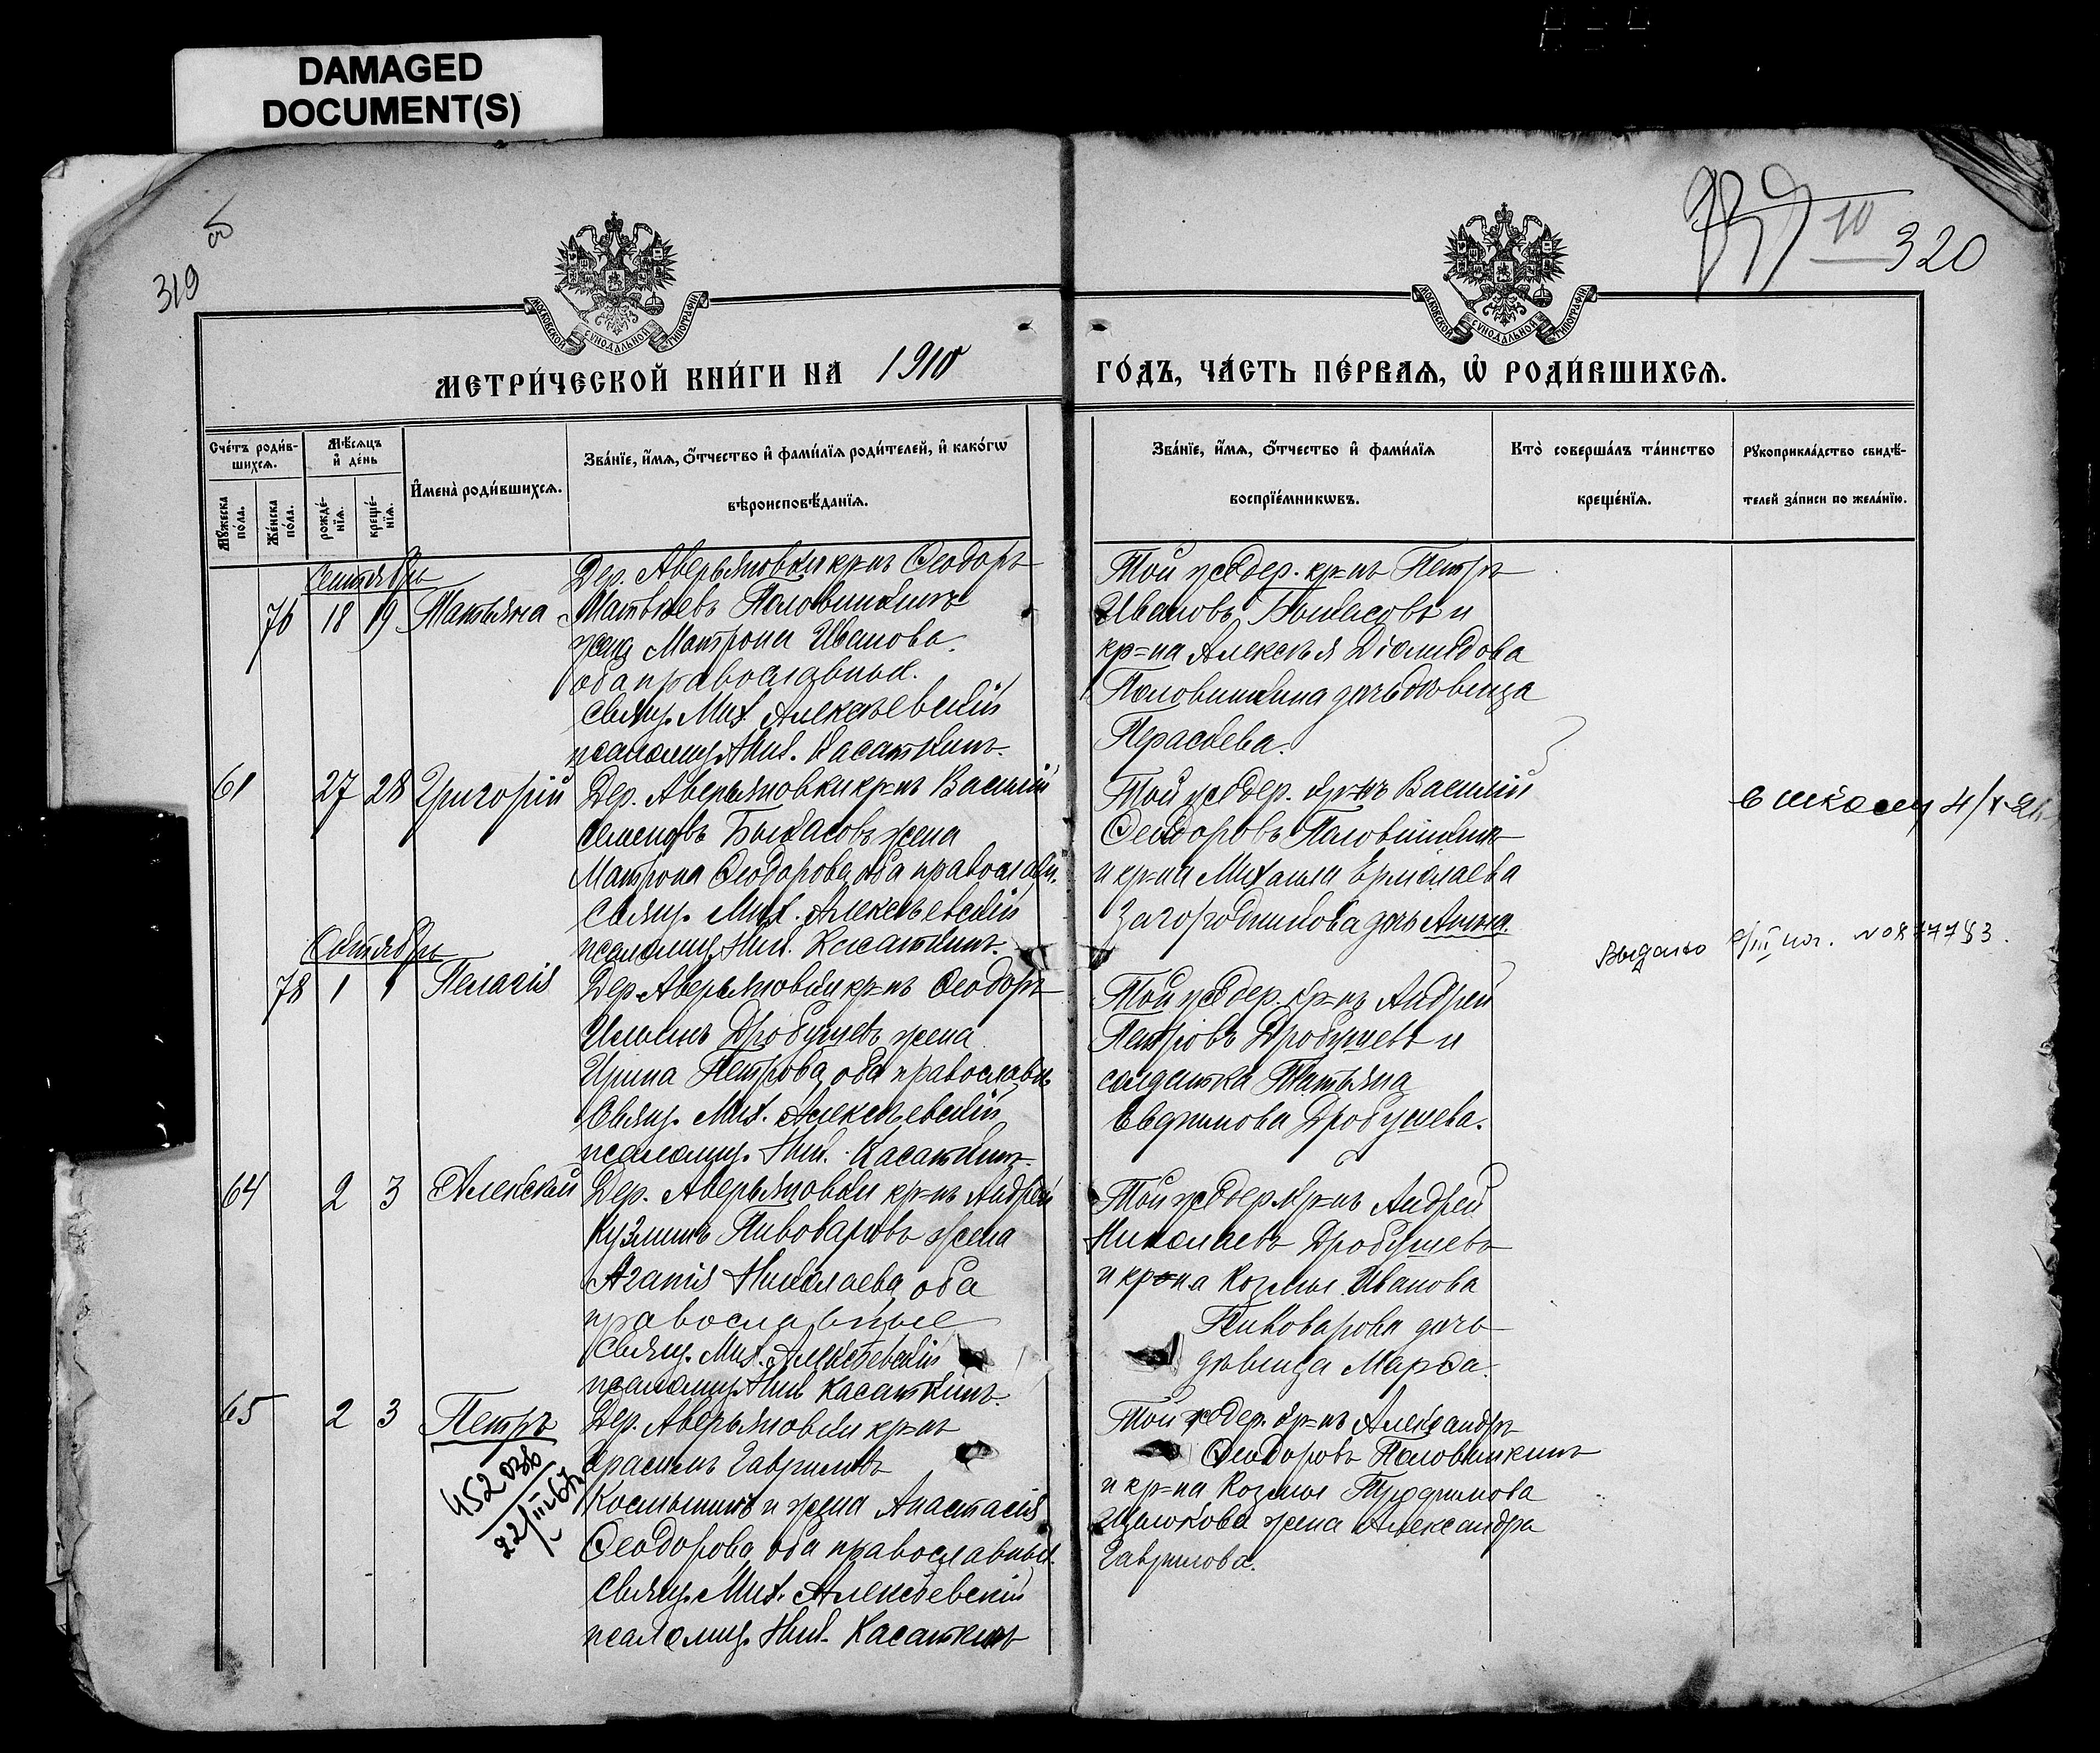 DAMAGED
DOCUMENT(S)
319
об
10
320
МОСКОВСКОЙ СУНОДАЛЬНОЙ ТИПОГРАФІИ
МОСКОВСКОЙ СУНОДАЛЬНОЙ ТИПОГРАФІИ
МЕТРИ́ЧЕСКОЙ КНИ́ГИ НА 1910
ГО́ДЪ, ЧА́СТЬ ПЕ́РВАѦ, Ѡ҆ РОДИ́ВШИХСѦ.
Сче́тъ роди́в-
шихсѧ.
Мѣ́сѧцъ
и҆ де́нь
Мꙋ́жеска
по́ла.
Же́нска
по́ла.
рожде́-
нїѧ.
креще́-
нїѧ.
И҆мена̀ роди́вшихсѧ.
Зва́нїе, и҆́мѧ, ѻ҆́тчество и҆ фами́лїѧ роди́телей, и҆ како́гѡ
вѣроисповѣ́данїѧ.
Зва́нїе, и҆́мѧ, ѻ҆́тчество и҆ фами́лїѧ
воспрїе́мникѡвъ.
Кто̀ соверша́лъ та́инство
креще́нїѧ.
Рꙋкоприкла́дство свидѣ́-
телей за́писи по жела́нїю.
Сентябрь
76 18 19 Татьяна
Дер. Аверьяновки кр=нъ Ѳеодоръ
Матвѣевъ Половинкинъ
жена Матрона Иванова.
оба православные.
Свящ. Мих. Алексѣевскій
псаломщ. Ник. Касаткинъ.
Той же дер. кр=нъ Петръ
Ивановъ Быкасовъ и
кр=на Алексѣя Діомидова
Половинкина дочь дѣвица
Параскева.
61 27 28 Григорій
Дер. Аверьяновки кр=нъ Василій
Семеновъ Быкасовъ жена
Матрона Ѳеодорова, оба православн.
Свящ. Мих. Алексѣевскій
псаломщ. Ник. Касаткинъ.
Той же дер. кр=нъ Василій
Ѳеодоровъ Половинкинъ
и кр=на Михаила Ермолаева
Загородникова дочь Анна.
в школу
Октябрь
78 1 1 Пелагія
Дер. Аверьяновки кр=нъ Ѳеодоръ
Ильинъ Дробушевъ жена
Ирина Петрова, оба православн.
Свящ. Мих. Алексѣевскій
псаломщ. Ник. Касаткинъ.
Той же дер. кр=нъ Андрей
Петровъ Дробушевъ и
солдатка Татьяна
Евфимова Дробушева.
Выдано
64 2 3 Алексѣй
Дер. Аверьяновки кр=нъ Андрей
Кузминъ Пивоваровъ жена
Агапія Николаева, оба
православные
Свящ. Мих. Алексѣевскій
псаломщ. Ник. Касаткинъ.
Той же дер. кр=нъ Андрей
Николаевъ Дробушевъ
и кр=на Козмы Иванова
Пивоварова дочь
дѣвица Марѳа.
65 2 3 Петръ
22/III 67
Дер. Аверьяновки кр=нъ
Герасимъ Гавриловъ
и жена Анастасія
Ѳеодорова, оба православные.
Свящ. Мих. Алексѣевскій
псаломщ. Ник. Касаткинъ
Той же дер. кр=нъ Александръ
Ѳеодоровъ Половинкинъ
и кр=на Козмы Трофимова
жена Александра
Гаврилова.